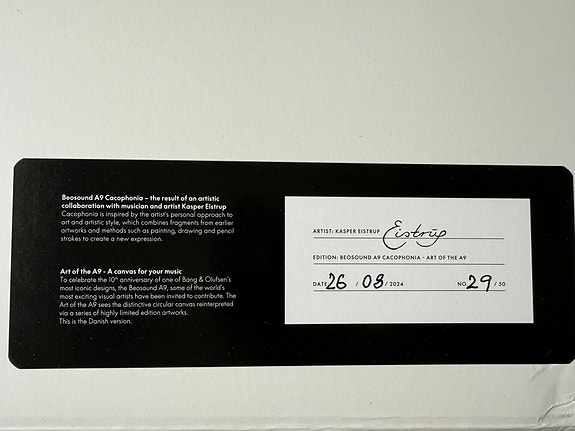 Beosound A9 Cacophonia – the result of an artistic
collaboration with musician and artist Kasper Eistrup
Cacophonia is inspired by the artist's personal approach to
art and artistic style, which combines fragments from earlier
artworks and methods such as painting, drawing and pencil
strokes to create a new expression.
Art of the A9 - A canvas for your music
To celebrate the 10th anniversary of one of Bang & Olufsen's
most iconic designs, the Beosound A9, some of the world's
most exciting visual artists have been invited to contribute. The
Art of the A9 sees the distinctive circular canvas reinterpreted
via a series of highly limited edition artworks.
This is the Danish version.
ARTIST: KASPER EISTRUP Eistrup
EDITION: BEOSOUND A9 CACOPHONIA - ART OF THE A9
DATE 26 / 08 / 2024 NO. 29 / 50